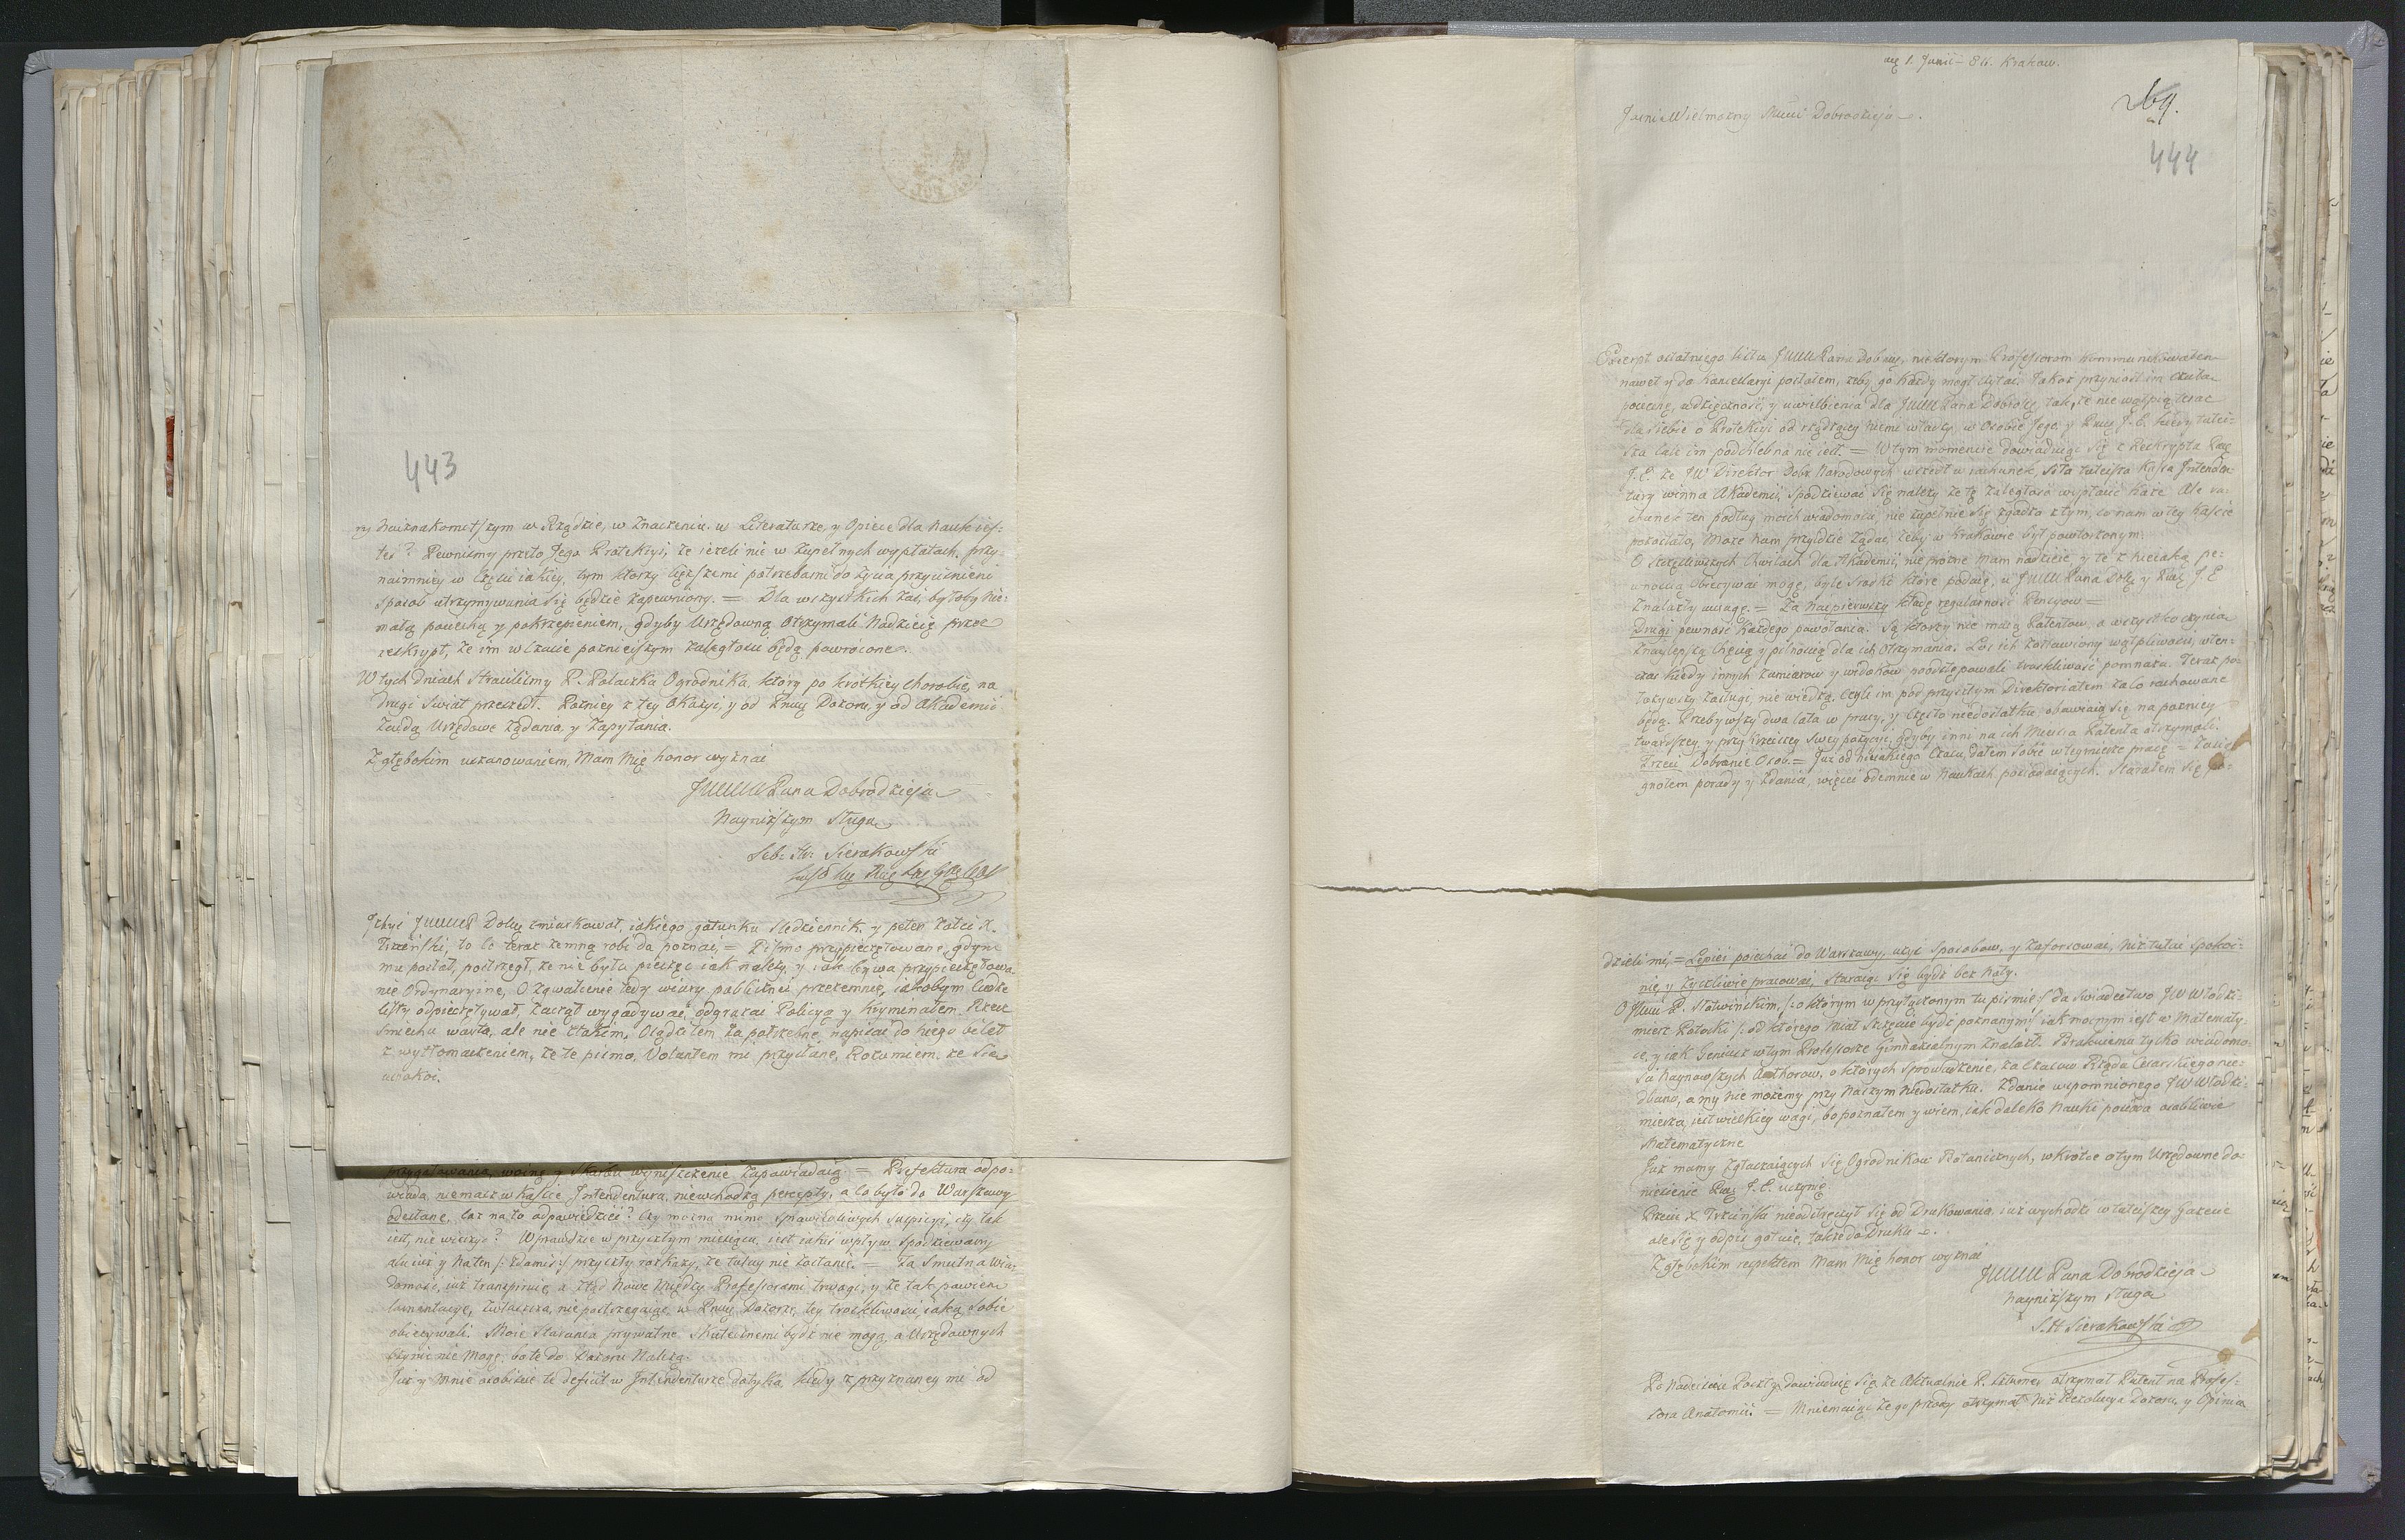 443
ry Naiznakomitszym w Rządzie, w Znaczeniu w Literaturze, y Opiece dla Nauk ies:
teś? Pewniśmy przeto Jego Protekcyi, że ieżeli nie w zupełnych wypłatach, przy
naimniey w Części iakiey, tym którzy Cięższemi potrzebami do życia przyciśnieni
sposob utrzymywania się będzie zapewniony. = Dla wszystkich zaś, byłoby Nie:
małą pociechą y pokrzepieniem, gdyby Urzędowną Otrzymali Nadzieię przez
reskrypt, że im w Czasie poznieiszym zaległości będą powrócone.
W tych Dniach Straciliśmy P. Polaczka Ogrodnika, ktory po krotkiey Chorobie, na
Drugi Swiat przeszedł. Pozniey z tey Okazyi, y od Dozoru, y od Akademii
zaydą Urzędowe żądania y zapytania.
Z głębokim uszanowaniem Mam Mię honor wyznać
JWWW Pana Dobrodzieja
Nayniższym Sługą
Seb: Sierakowski
Żebyś JWWWP Dobrodz zmiarkował, iakiego gatunku Sledziennik y pełen żółci X.
Trzciński, to co teraz zemną robi da poznać = Pismo przypieczętowane, gdym
mu posłał, postrzegł, że nie była pieczęć iak należy, y iak bywa przypieczętowa
nie Ordynaryine, O zgwałcenie tedy wiary publiczney przezemnie, iakobym Cudze
listy odpieczętywał, zaczął wygadywać, odgrażać Policyą y Kryminałem. Rzecz
smiechu warta, ale nie z takim, Osądziłem za potrzebne, napisać do Niego bilet
z wytłomaczeniem, że te pismo, Volantem mi przysłane, Rozumiem, że Się
uspokoi.
przygotowania, woinę y Skarbu wyniszczenie zapowiadaią. = Prefektura odpo:
wiada, niemasz w Kassie Intendentura, niewchodzą percepty, a co było do Warszawy
odesłane, Cóż na to odpowiedzieć? Czy można mimo sprawiedliwych suspicyi, czy tak
iest, nie wierzyć? Wprawdzie w przyszłym miesiącu, iest iakiś wpływ spodziewany
ale iuż y Na ten /: zdami:/ przyszły rozkazy, że tutay nie zostanie. = Ta Smutna Wia:
domość, iuż transpiruie, a ztąd Nowe między Professorami trwogi, y że tak powiem
lamentacye, zwłaszcza, nie postrzegaiąc w Dozorze, tey troskliwości, iaką sobie
obiecywali. Moie starania prywatne Skutecznemi bydź nie mogą, a Urzędownych
Czynić nie Mogę, bo te do Dozoru Należą.
Już y Mnie osobiście te deficit w Intendenturze dotyka kiedy z przyznaney mi od
1. Junii 811. Krakow.
269.
444
Jasnie Wielmożny Mości Dobrodzieju.
Excerpt ostatniego listu JWWW Pana Dobrodz, niektorym Professorom kommunikowałem
nawet y do Kancellaryi posłałem, żeby go każdy mogł czytać. Jakoż przyniosł im czułą
pociechę, wdzięczność, y uwielbienia dla JWWW Pana Dobrodz, tak, że nie wątpią teraz
dla siebie o Protekcyi od rządzącey niemi władzy, w Osobie Jego y J. E. kiedy tutei:
sza tak im podchlebna nie iest. = W tym momencie dowiaduię się z Reskryptu
J. E. że JW Direktor Dobr Narodowych wszedł w rachunek, Siła tuteysza Kassa Intenden
tury winna Akademii, Spodziewać się należy że tę zaległość wypłacić każe. Ale ra:
chunek ten podług moich wiadomości, nie zupełnie się zgadza z tym, co nam w tey Kassie
pozostało, Może nam przyidzie żądać, żeby w Krakowie był powtorzonym.
O szczęśliwszych Chwilach dla Akademii, niepłonne Mam nadzieie, y te z nieiaką pe:
wnością Obiecywać mogę, byle srodki które podaię, u JWWW Pana Dobr y J. E
znalazły uwagę. = Za Naipierwszy kładę regularność Pencyow =
Drugi pewność każdego powołania. Są ktorzy nie maią Patentow, a wszystko czynią
z naylepszą chęcią y pilnością dla ich Otrzymania. Los ich zostawiony wątpliwości, wten:
czas kiedy innych zamiarow y widokow poodstępowali troskliwość pomnaża. Teraz po:
łożywszy zasługi, nie wiedzą, czyli im pod przyszłym Direktoriatem za co rachowane
będą. Przebywszy dwa lata w pracy, y Często niedostatku obawiaią się na pozniey
twardszey y przykrzeiszey swey pozycyi, gdyby inni na ich Mieysca Patenta otrzymali.
Trzeci Dobranie Osob. = Już od nieiakiego Czasu, dałem sobie w tey mierze pracę = zasię
gnołem porady y zdania, więcei odemnie w Naukach posiadaiących. Starałem się po:
dzieli mi, = Lepiei poiechać do Warszawy, użyć sposobow, y zaforsować, niż tutai spokoi:
nie y życzliwie pracować, Staraiąc się bydź bez Nały.
O JWW P. Słotwińskim, /: o którym w przyłączonym tu pismie :/ da świadectwo JWWłodzi:
mierz Potocki /: od którego miał szczęście bydź poznanym :/ iak mocnym iest w Matematy:
ce, y iak Geniusz w tym Professorze Gimnazialnym znalazł. Brakuie mu tylko wiadomo:
ści Naynowszych Authorow, o ktorych sprowadzenie, za Czasow Rządu Cesarskiego nie:
dbano, a my nie możemy przy Naszym Niedostatku. Zdanie wspomnionego JWWłodzi:
mierza, iest wielkiey wagi, bo poznałem y wiem, iak daleko Nauki posiada osobliwie
Matematyczne
Już mamy zgłaszaiących się Ogrodnikow Botanicznych, w krotce o tym Urzędowne do:
niesienie J. E. uczynię.
Przeuw X Trzciński nieodstręczył się od Drukowania, iuż wychodzi w tuteiszey Gazecie
ale się y odpis gotuie, także do Druku.
Z głębokim respektem Mam Mię honor wyznać
JWWW Pana Dobrodzieja
Nayniższym sługą
S. H Sierakowski
Po Nadeiściu Poczty dowiaduię się że Aktualnie P. otrzymał Patent na Profes:
sora Anatomii. = Mniemaiąc że go prędzy otrzymał Niż Rezolucya Dozoru, y Opinia